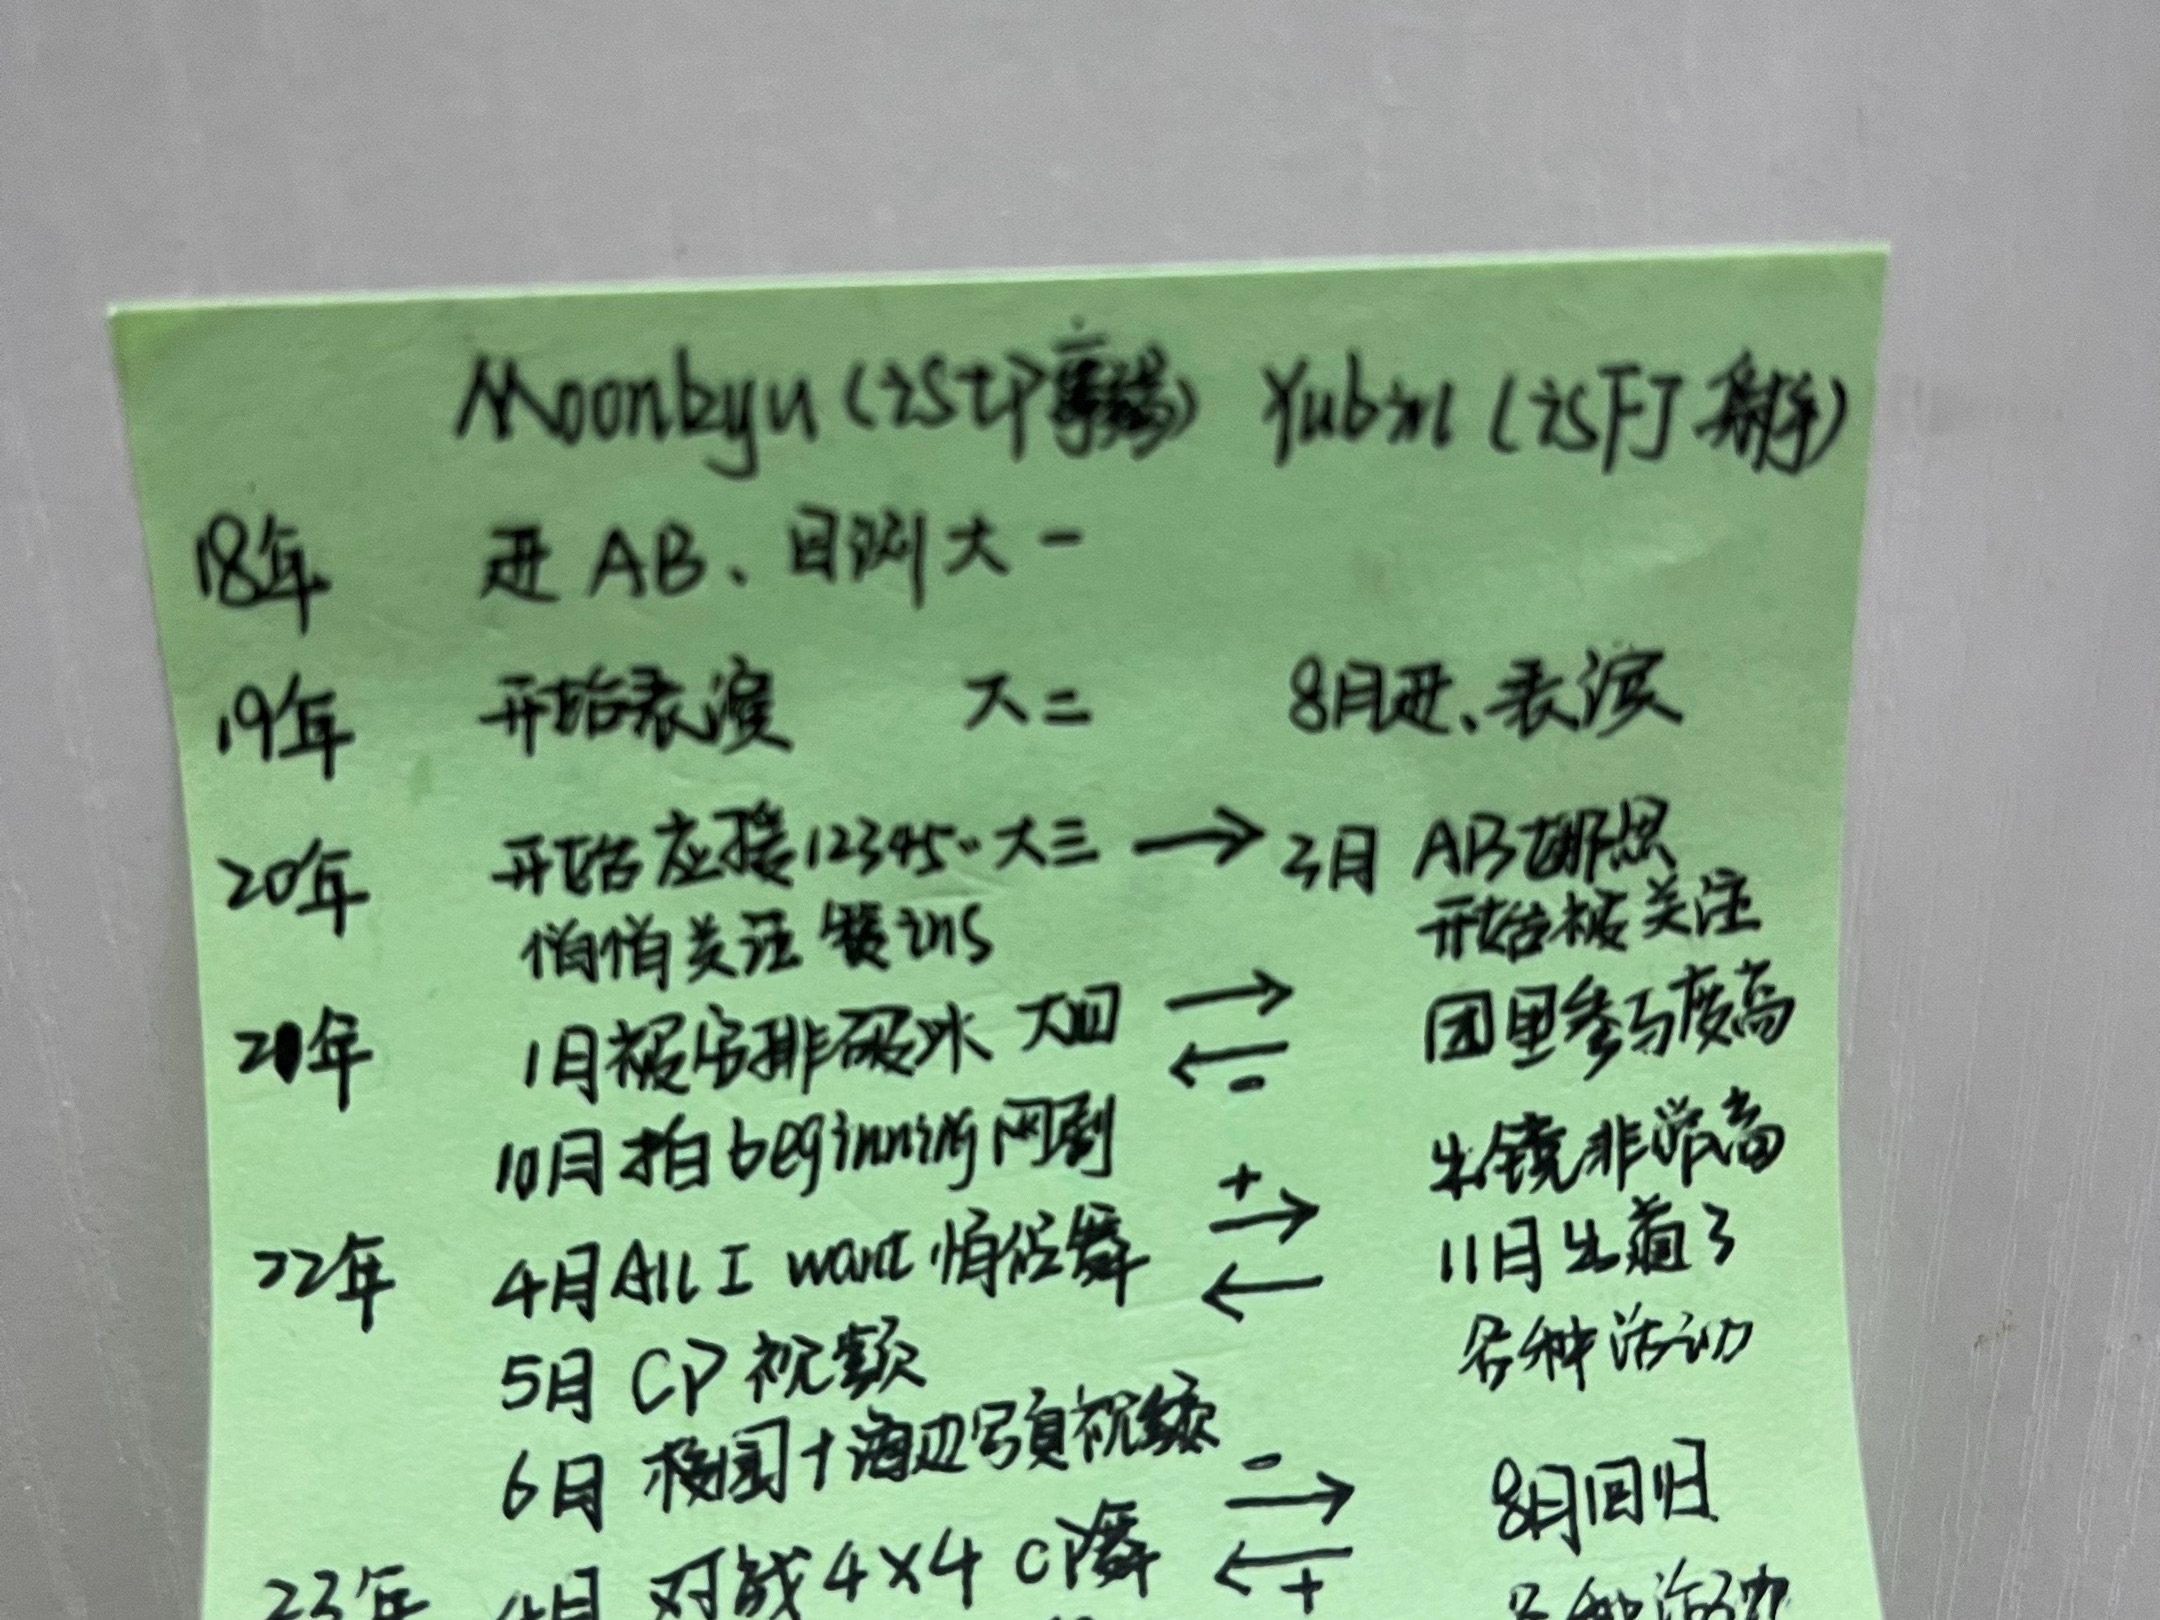 Moonkyu (istP摩羯) Yubin (isFJ
18年 进AB、目测大一
19年 开始表演 大二 8月进、表演
20年 开始应援12345.. 大三 → 3月 AB
怕怕关注 ins 开始被关注
21年 1月被安排破冰 大四 → 团里参与度高
← −
10月拍beginning网剧 出镜非常高
+
22年 4月All I want 怕位舞 → 11月出道了
←
5月 CP视频 各种活动
6月 校园+海边写真视频 −
→ 8月回归
23年 4月 对战4×4 CP舞 ← + 各种活动